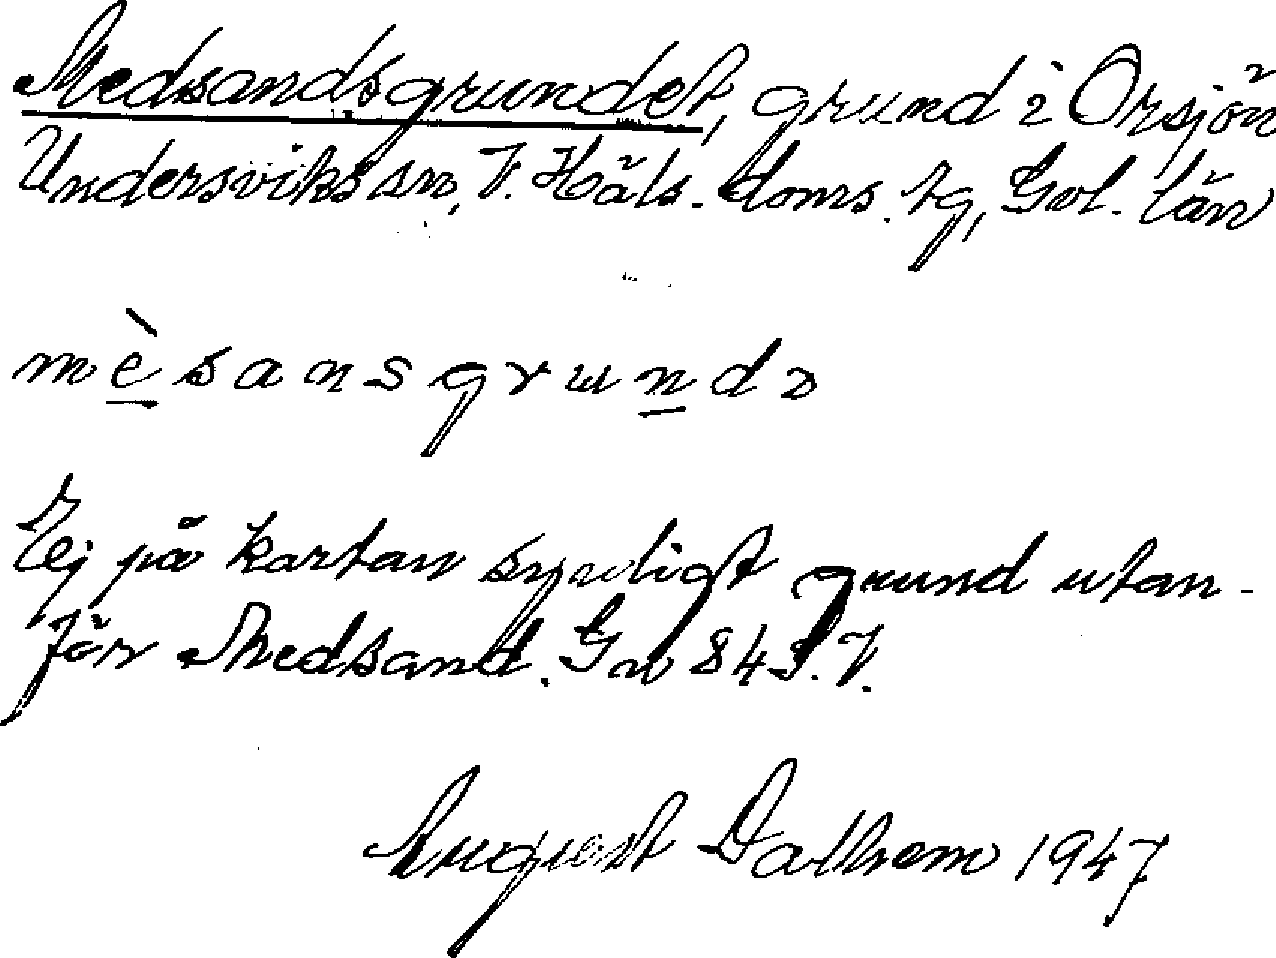 Medsandsgrundet, grund i Orsjön
Undersviks sn, V. Häls. doms. tg, Gvl. län
mèsansgrundə
Ej på kartan synligt grund utan-
för Medsand. Gav 84 S.V.
August Dalhem 1947